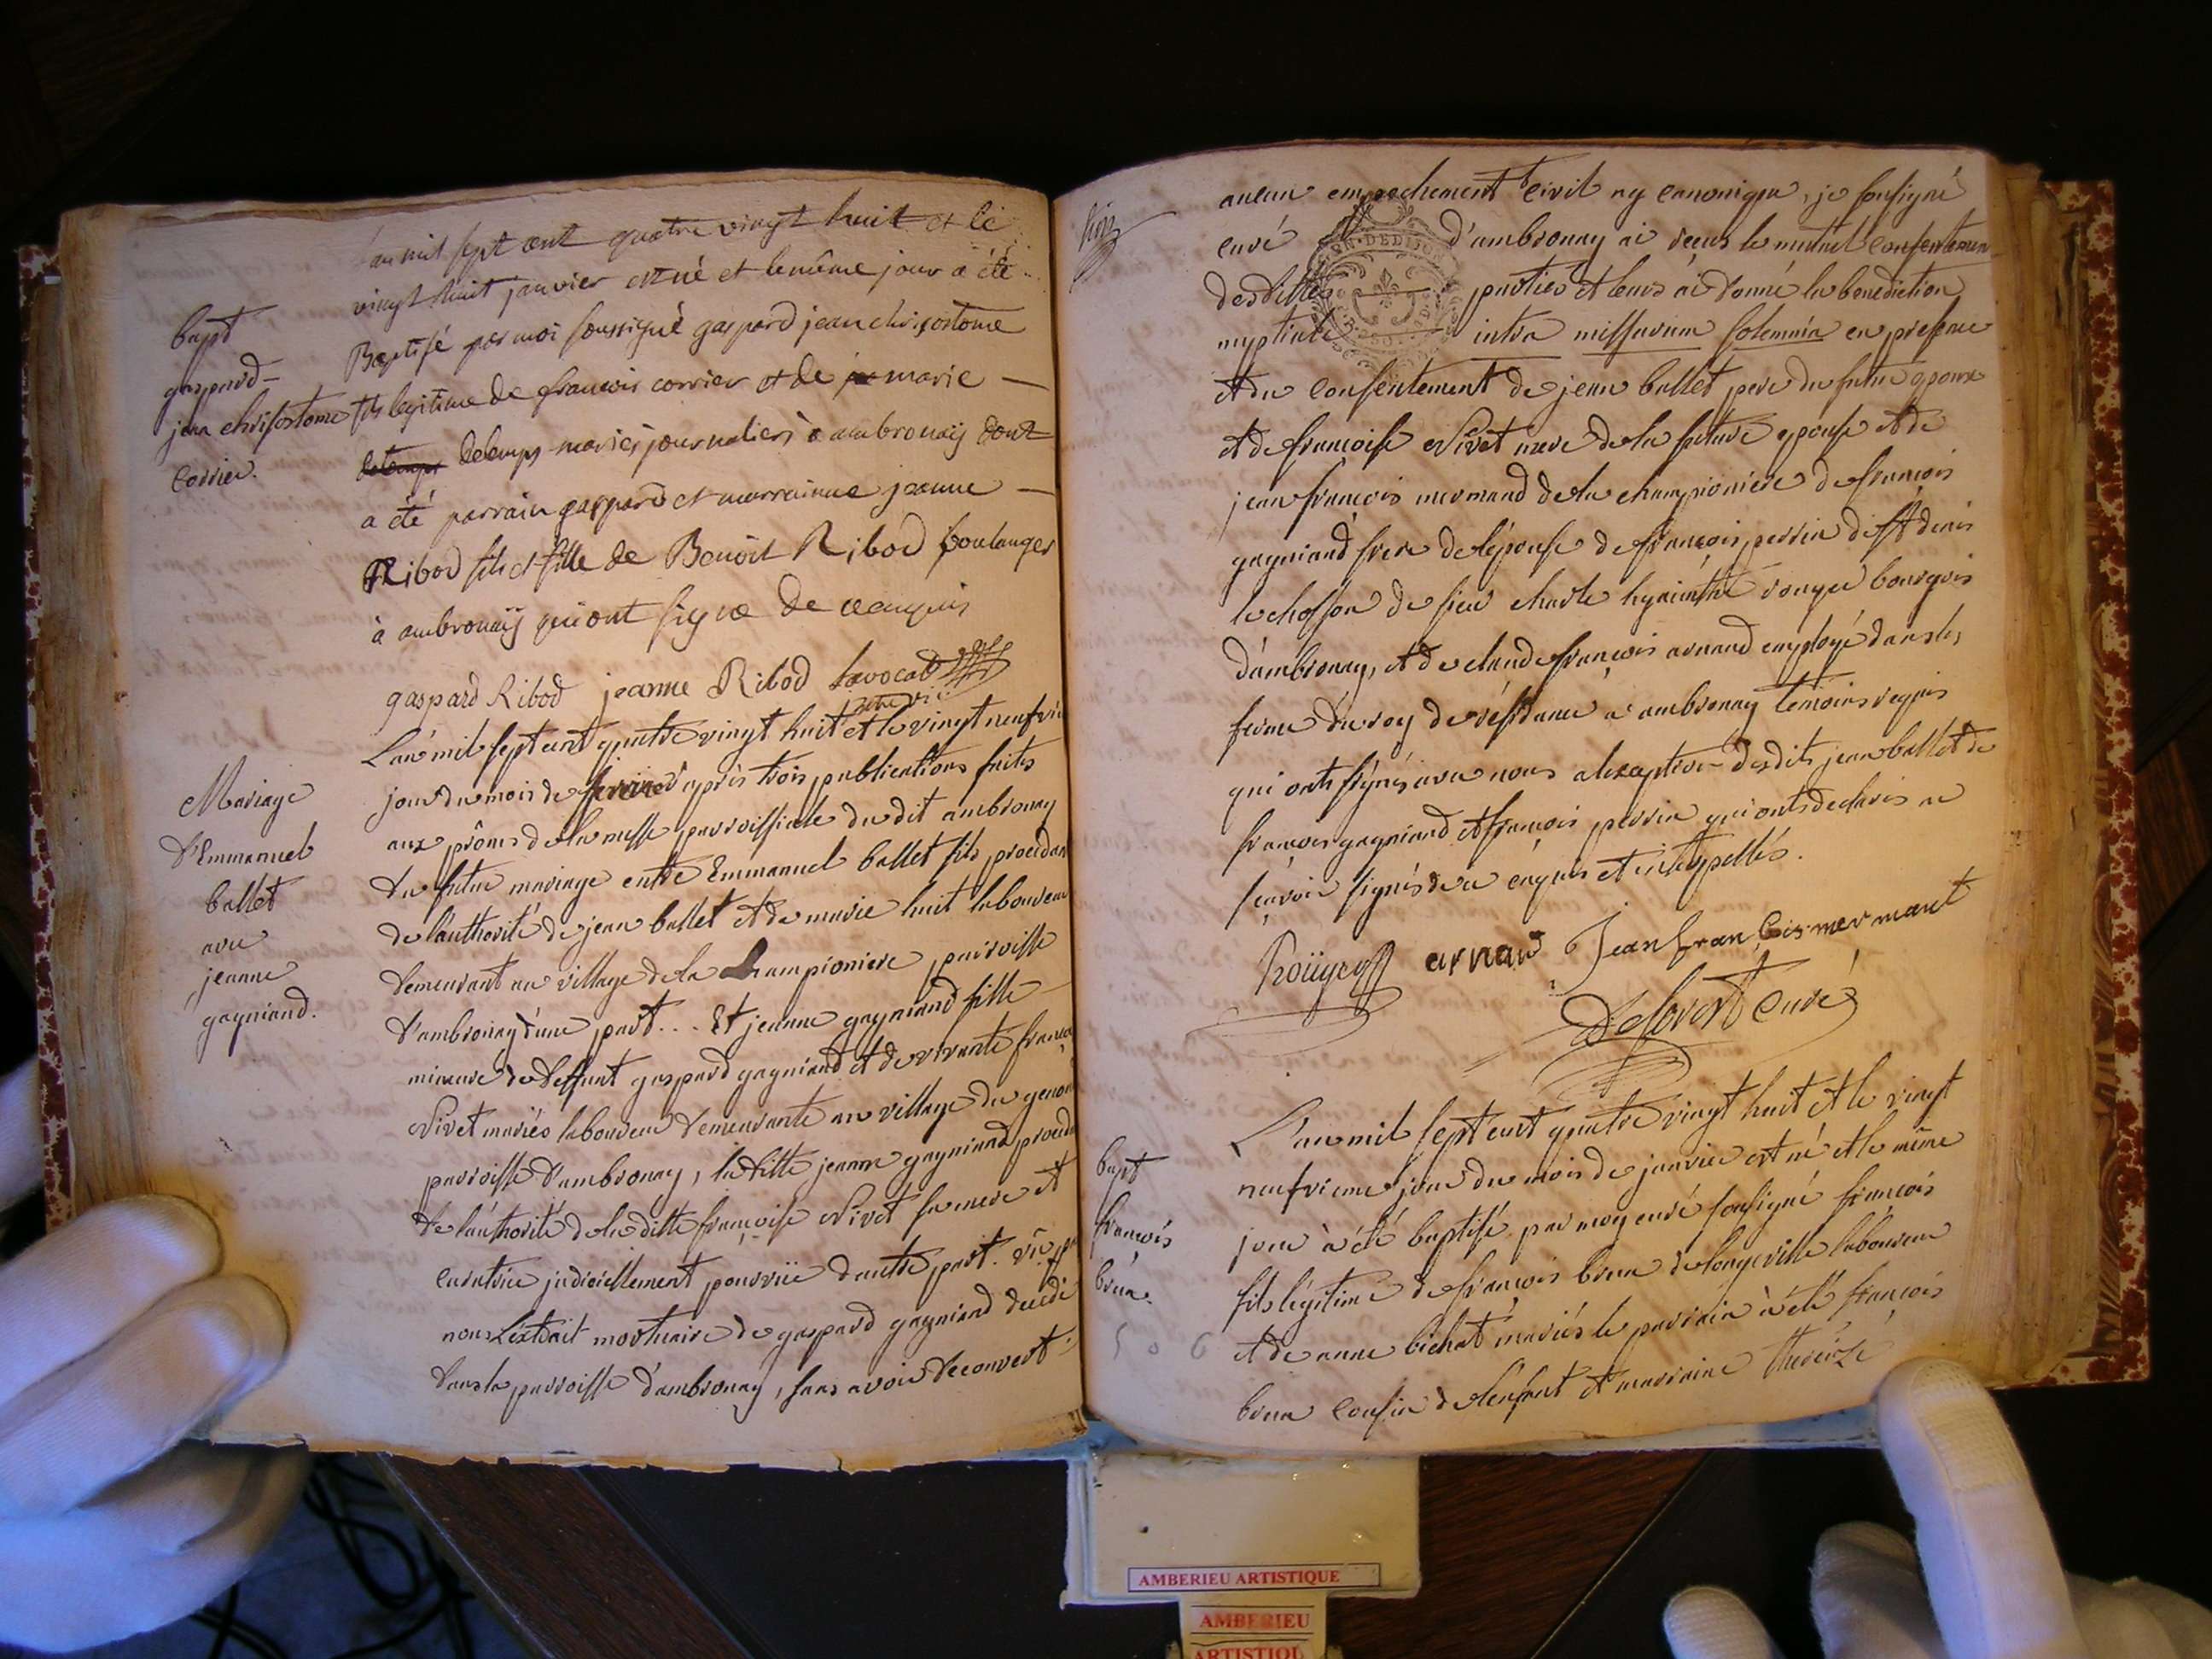 L'an mil sept cent quatre vingt huit et le
vingt huit janvier est né et le même jour a été
Baptisé par moi soussigné gaspard jean chrisostome
fils legitime de francois corrier et de marie
delemps mariés journaliers à ambronaÿ dont
a été parrain gaspard et marrainne jeanne
Ribod fils et fille de Benoit Ribod boulanger
à ambronaÿ qui ont signé de ce enquis
gaspard Ribod jeanne Ribod Lavocat
bapt
gaspard
jean chrisostome
corrier.
L'an mil sept cent quatre vingt huit et le vingt neufvie
jour du mois de janvier après trois publications faites
aux prônes de la messe parroissiale du dit ambronay
du futur mariage entre Emmanuel ballet fils procedan
de l'authorité de jean ballet et de marie huit laboureur
demeurant au village de la championiere parroisse
d'ambronay d'une part... Et jeanne gagniand fille
mineure de deffunt gaspard gagniand et de vivante francoi
Nivet mariés laboureur demeurante au village du genou
parroisse d'ambronay, la ditte jeanne gagniand proceda
de l'authorité de la ditte françoise Nivet sa mere et
curatrice judiciellement pourvüe d'autre part. vû par
nous L'extrait mortuaire de gaspard gagniand decedé
dans la parroisse d'ambronay, sans avoir decouvert
Mariage
d'Emmanuel
ballet
avec
jeanne
gagniand.
aucun empechement civil ny canonique, je sousigné
curé d'ambronay ai reçus le mutuel consentemen
desdittes parties et leurs ai donné la benediction
nuptiale intra missarum solemnia en presence
et du consentement de jean ballet pere du futur epoux
et de françoise Nivet mere de la future epouse et de
jean françois mermand de la championiere de françois
gagniand frere de l'épouse de françois perrin de st denis
le chosson de sieur charle hyacinthe rouyer bourgois
d'ambronay, et de claude françois arnaud employé dans les
ferme du roy de résidance a ambronay temoins requis
qui onts signés avec nous a l'exception desdits jean ballet de
françois gagniand et françois perrin qui onts declarés ne
sçavoir signés de ce enquis et interpellés.
Roüyer arnau Jean françois mermant
Deforest curé
L'an mil sept cent quatre vingt huit et le vingt
neufvieme jour du mois de janvier est né et le même
jour à été baptisé par moy curé sousigné françois
fils légitime de françois brun de longeville laboureur
et de anne bichat mariés le parrain à été françois
brun cousin de l'enfant et marraine thérèze
bapt
françois
brun.
506
AMBERIEU ARTISTIQUE
AMBERIEU
ARTISTIQU